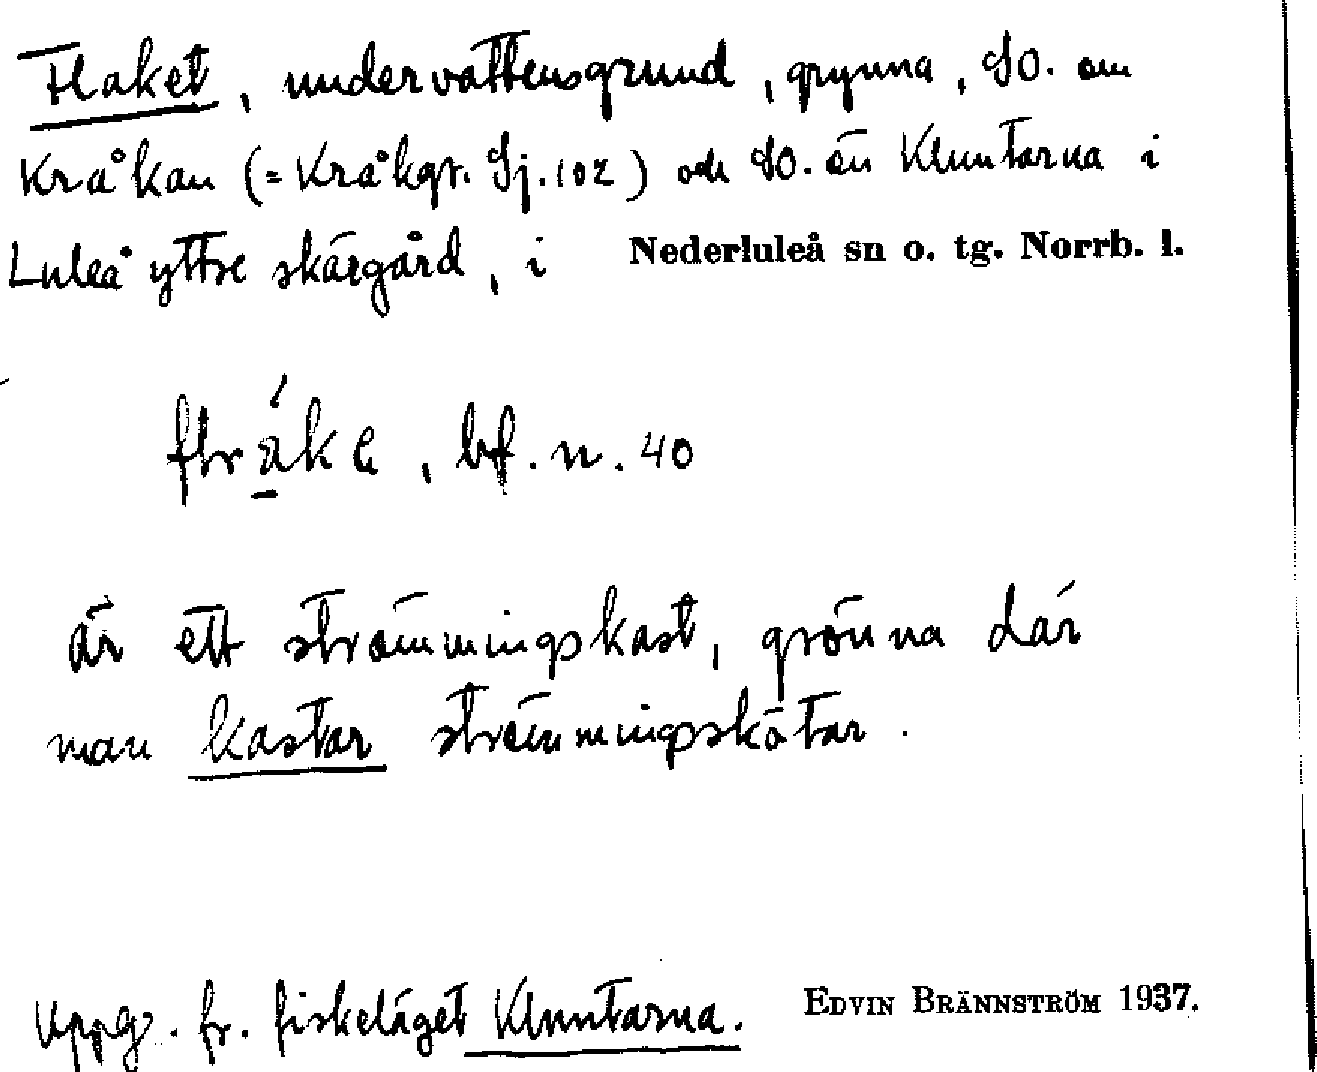 Flaket, undervattensgrund, grynna, SO. om
Kråkan (= Kråkgr. Sj. 102) och SO. ön Kluntarna i
Luleå yttre skärgård, i Nederluleå sn o. tg. Norrb. l.
bf. n. 40
är ett strömmingskast, grönna där
man kastar strömmingskötar.
Uppg. fr. fiskeläget Kluntarna. EDVIN BRÄNNSTRÖM 1937.